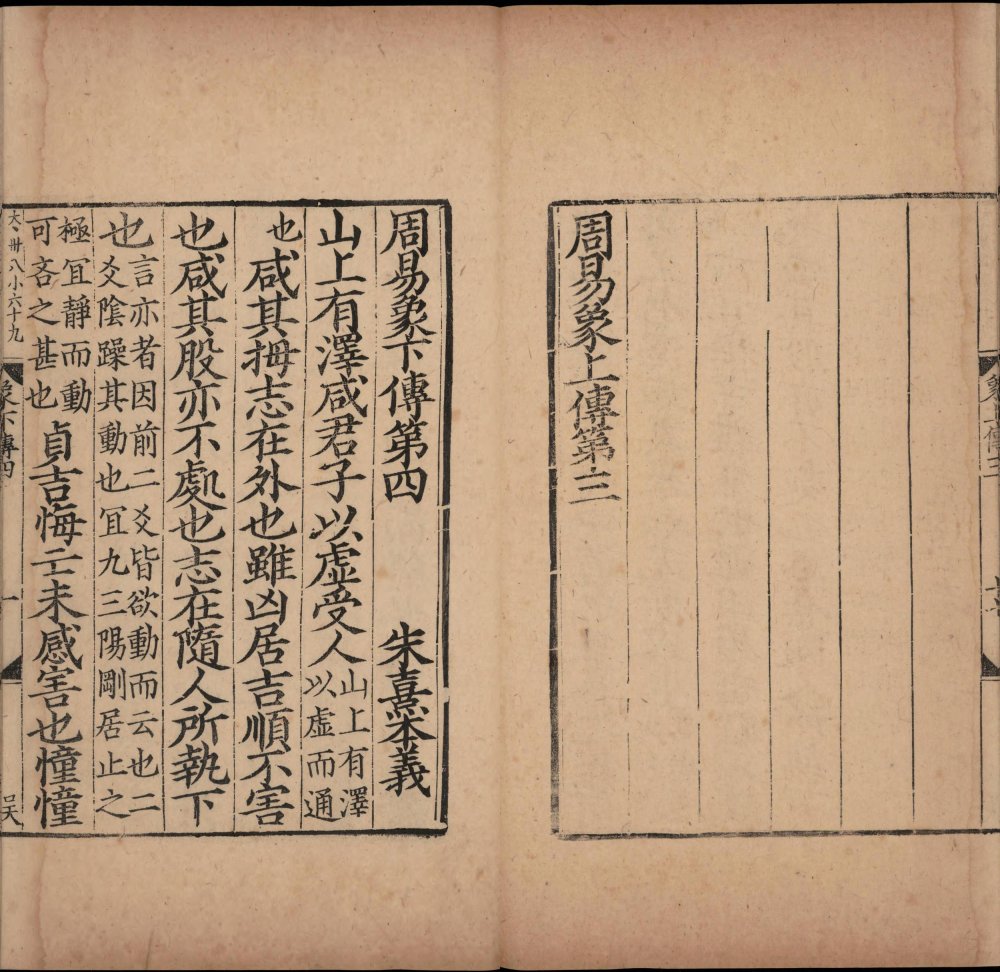 周易象上傳第三
周易象下傳第四 朱熹本義
山上有澤咸君子以虛受人山上有澤
以虛而通
也咸其拇志在外也雖凶居吉順不害
也咸其股亦不處也志在隨人所執下
也言亦者因前二爻皆欲動而云也二
爻陰躁其動也冝九三陽剛居止之
極冝靜而動
可吝之甚也貞吉悔亡未感害也憧憧
大卅八小六十九
象下傳四
一
象上傳三